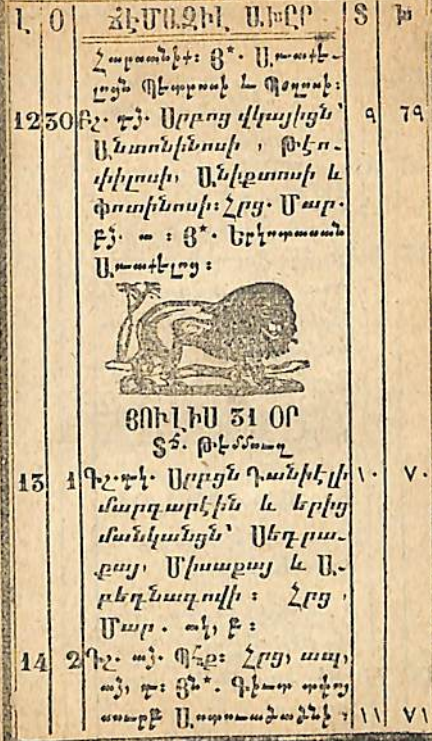 Լ Օ ՃԷՄԱԶԻԼ ԱԽԸՐ Տ
Յ*. Առաքե-
լոցն Պետրոսի և Պօղոսի:
12 30 Բշ. գյ. Սրբոց վկայիցն՝ ٩ ٢٩
Անտոնինոսի, Թէո-
փիլոսի, Անիքտոսի և
Փոտինոսի: Հրց. Մար.
բյ. ա : Յ*. Երկոտասան
Առաքելոց:
ՅՈՒԼԻՍ 31 ՕՐ
Տճ. Թէմմուզ
13 1 Գշ. գկ. Սրբցն Դանիէլի ١٠ ٧٠
մարգարէին և երից
մանկանցն՝ Սեդրա-
քայ, Միսաքայ և Ա-
բեդնագովի : Հրց,
Մար. ակ, բ:
14 2 Դշ. այ. Պհք: Հրց, ապ,
այ, գ: Յն*. Գիւտ տփոյ
սուրբ Աստուածածնի: ١١ ٧١